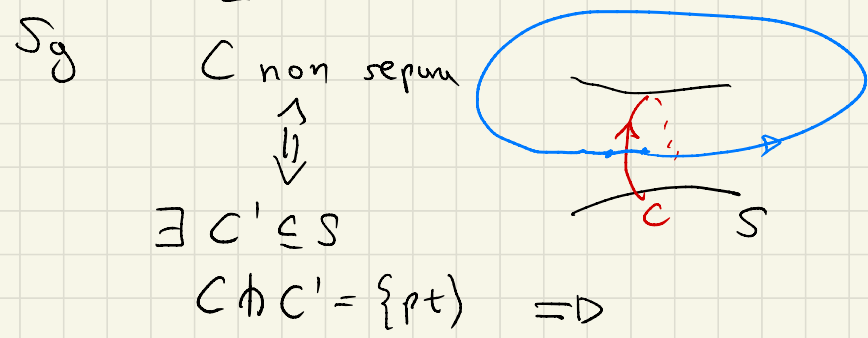 Sg
C non separa
⇕
∃ C' ⊆ S
C ⋔ C' = {pt} ⇒
C
S